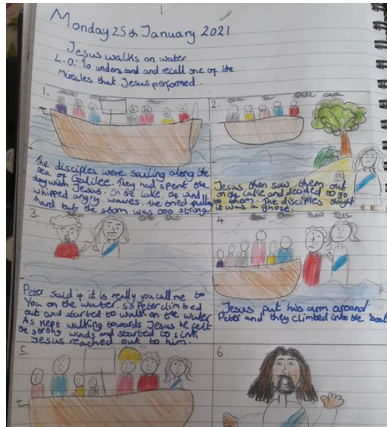 Monday 25th January 2021
Jesus walks on water
L.O: To understand and recall one of the
Miracles that Jesus performed.
1.
2.
The disciples were sailing along the
sea of Galilee. They had spent the
day with Jesus. On the lake, the wind
whipped angry waves. The tried pulling
hard but the storm was too strong
Jesus then saw them out
on the lake and decided to go
to them. The disciples thought
it was a ghost.
3.
4
Peter said if it is really you call me to
You on the water. So Peter climbed
out and started to walk on the water
As kept walking towards Jesus he felt
the strong winds and started to sink
Jesus reached out to him.
Jesus put his arm around
Peter and they climbed into the boat
5.
6